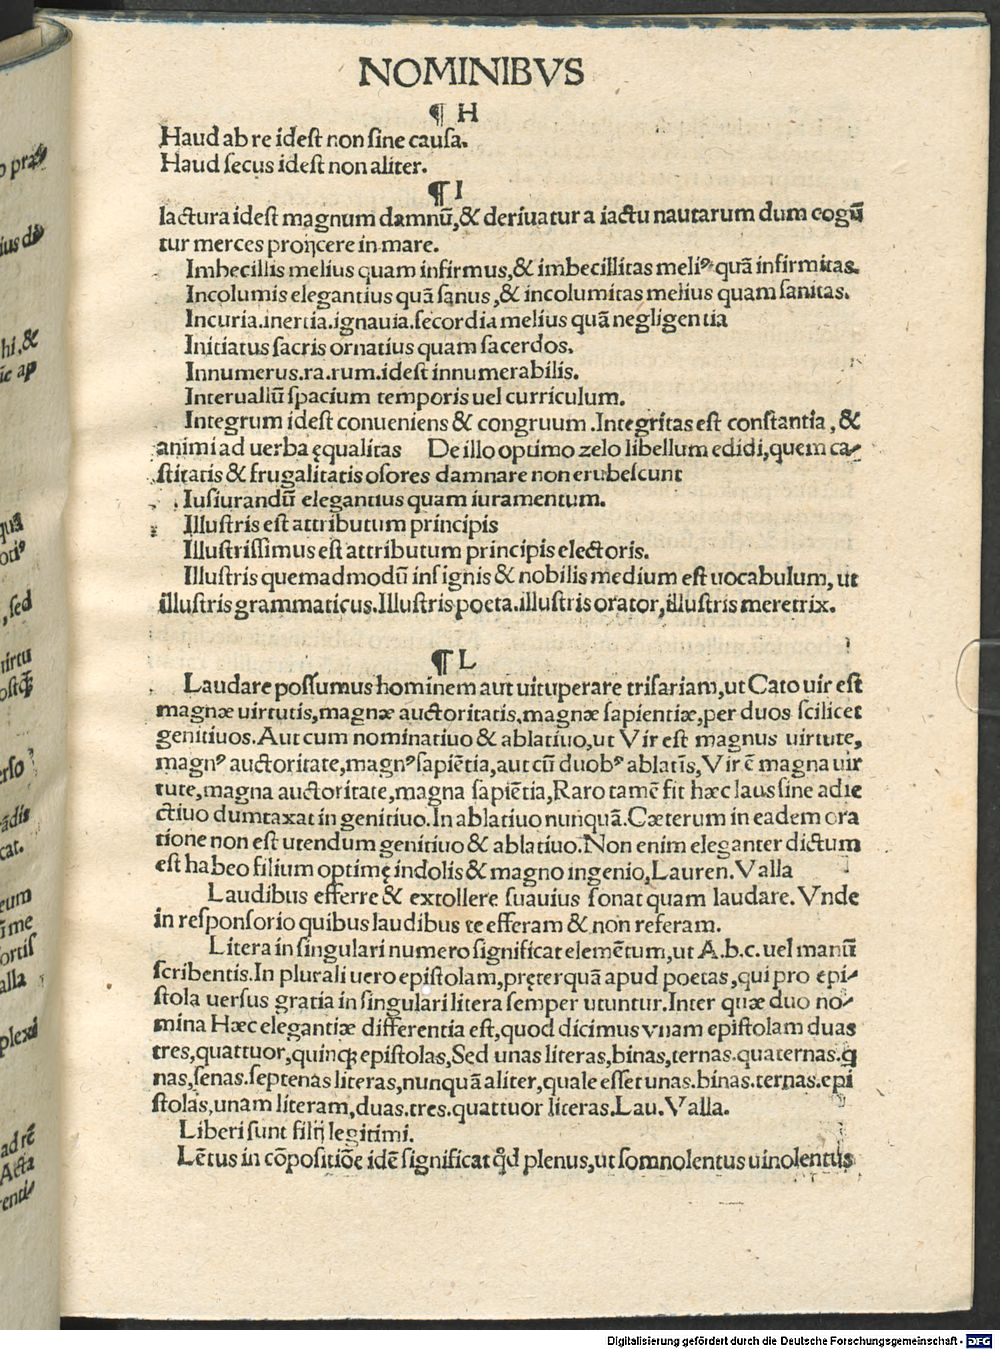 NOMINIBVS
¶ H
Haud ab re idest non sine causa.
Haud secus idest non aliter.
¶ I
Iactura idest magnum damnū, & deriuatur a iactu nautarum dum cogū
tur merces proijcere in mare.
Imbecillis melius quam infirmus, & imbecillitas meliꝰ quā infirmitas.
Incolumis elegantius quā sanus, & incolumitas melius quam sanitas.
Incuria.inertia.ignauia.secordia melius quā negligentia
Initiatus sacris ornatius quam sacerdos.
Innumerus.ra.rum.idest innumerabilis.
Interuallū spacium temporis uel curriculum.
Integrum idest conueniens & congruum. Integritas est constantia, &
animi ad uerba ęqualitas De illo optimo zelo libellum edidi, quem ca-
stitatis & frugalitatis osores damnare non erubescunt
Iusiurandū elegantius quam iuramentum.
Illustris est attributum principis
Illustrissimus est attributum principis electoris.
Illustris quemadmodū insignis & nobilis medium est uocabulum, ut
illustris grammaticus. Illustris poeta. illustris orator, illustris meretrix.
¶ L
Laudare possumus hominem aut uituperare trifariam, ut Cato uir est
magnæ uirtutis, magnæ auctoritatis, magnæ sapientiæ, per duos scilicet
genitiuos. Aut cum nominatiuo & ablatiuo, ut Vir est magnus uirtute,
magnꝰ auctoritate, magnꝰ sapiētia, aut cū duobꝰ ablatīs, Vir ē magna uir
tute, magna auctoritate, magna sapiētia, Raro tamē fit hæc laus sine adie
ctiuo dumtaxat in genitiuo. In ablatiuo nunquā. Cæterum in eadem ora
tione non est utendum genitiuo & ablatiuo. Non enim eleganter dictum
est habeo filium optimę indolis & magno ingenio, Lauren. Valla
Laudibus efferre & extollere suauius sonat quam laudare. Vnde
in responsorio quibus laudibus te efferam & non referam.
Litera in singulari numero significat elemētum, ut A.b.c. uel manū
scribentis. In plurali uero epistolam, pręterquā apud poetas, qui pro epi-
stola uersus gratia in singulari litera semper utuntur. Inter quæ duo no-
mina Hæc elegantiæ differentia est, quod dicimus vnam epistolam duas
tres, quattuor, quinqꝫ epistolas, Sed unas literas, binas, ternas. quaternas. q
nas, senas. septenas literas, nunquā aliter, quale esset unas. binas. ternas. epi
stolas, unam literam, duas. tres. quattuor literas. Lau. Valla.
Liberi sunt filij legitimi.
Lētus in cōpositiōe idē significat qd plenus, ut somnolentus uinolentus
Digitalisierung gefördert durch die Deutsche Forschungsgemeinschaft - DFG